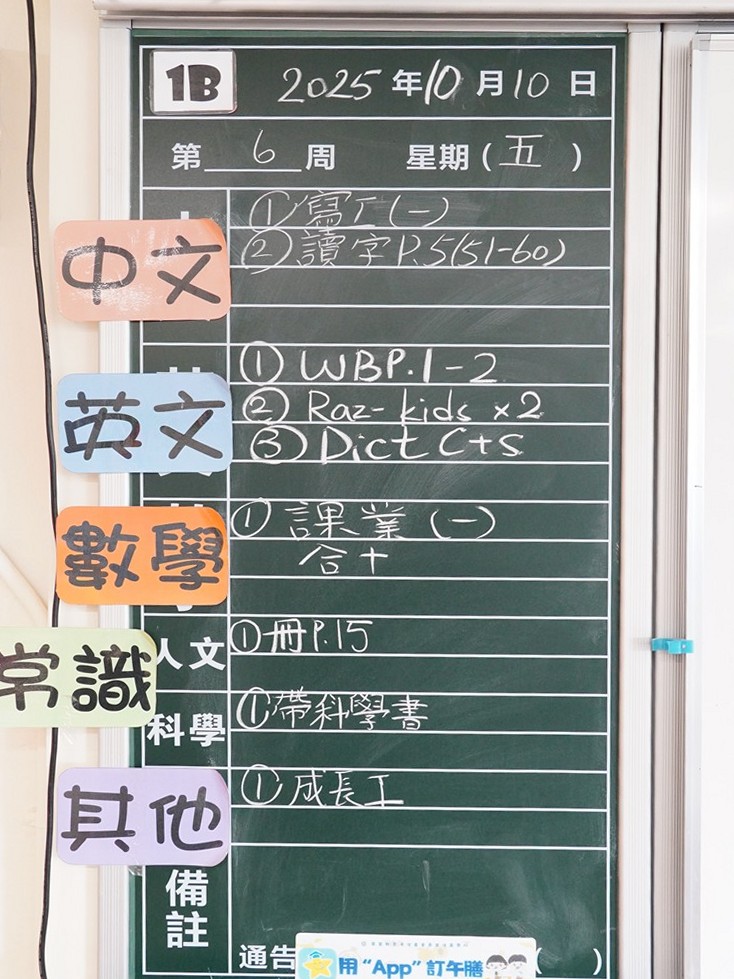 1B 2025 年 10 月 10 日
第 6 周 星期 ( 五 )
中文
① 寫工 (一)
② 讀字 P.5 (51-60)
英文
① WBP.1-2
② Raz-kids x2
③ Dict C+S
數學
① 課業 (一)
合十
常識
人文
① 冊 P.15
科學
① 帶科學書
其他
① 成長工
備註
通告 ( )
用 “App” 訂午膳